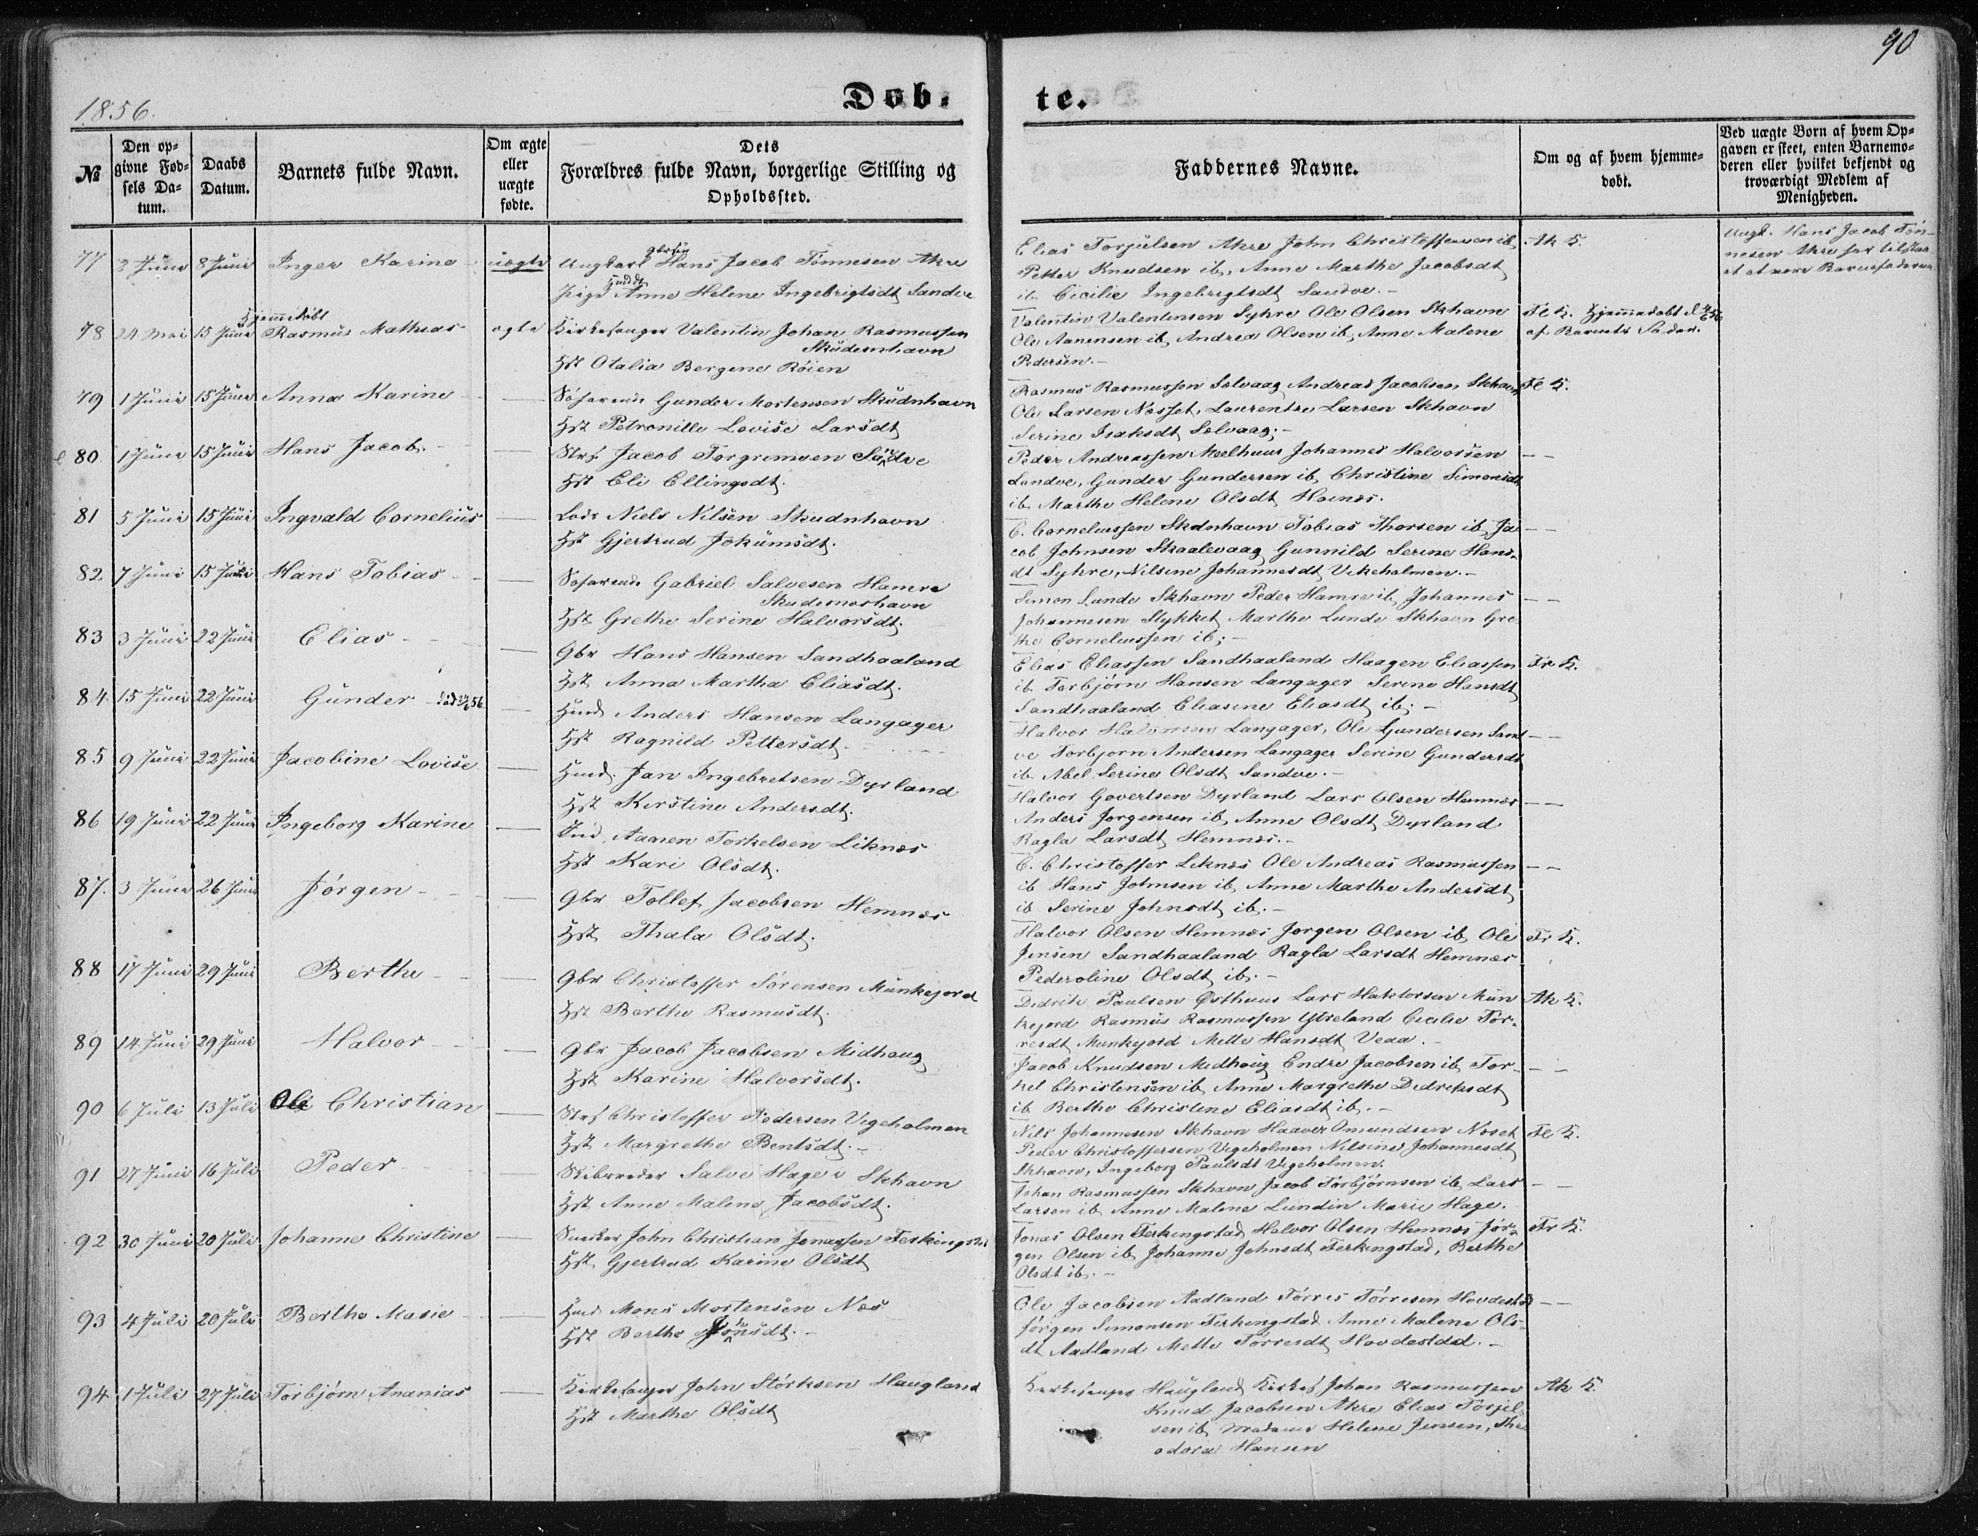 90
1856.
Døb-
te.
№
Den op-
givne Fød-
sels Da-
tum.
Daabs
Datum.
Barnets fulde Navn.
Om ægte
eller
uægte
fødte.
Dets
Forældres fulde Navn, borgerlige Stilling og
Opholdssted.
Faddernes Navne.
Om og af hvem hjemme-
døbt.
Ved uægte Børn af hvem Op-
gaven er skeet, enten Barnemo-
deren eller hvilket bekjendt og
troværdigt Medlem af
Menigheden.
77 2 Juni 8 Juni Inger Karine uægte Ungkarl Hans Jacob Tønnesen Akre
Pige Anne Helene Ingebrigtsdt Sandve
Elias Torjulsen Akre John Christoffersen ib
Petter Knudsen ib, Anne Marthe Jacobsdt
ib Cicilie Ingebrigtsdt Sandve.-
Ak K.
Ungk. Hans Jacob Tøn-
nesen Akre har tilstaa-
et at være Barnefaderen
78 24 Mai 15 Juni Hjemmedøbt Rasmus Mathias ægte Kirkesanger Valentin Johan Rasmussen
Skudesnhavn
Hst Otalia Bergene Røien
Valentin Valentinsen Syhre Ole Olsen Skhavn
Ole Aanensen ib, Andrea Olsen ib, Anne Malene
Pedersen.-
Fe K. Hjemmedøbt
af Barnets Fader.
79 1 Juni 15 Juni Anna Karine - Søfarende Gunder Mortensen Skudnhavn
Hst Petronille Lovise Larsdt
Rasmus Rasmussen Sølvaag Andreas Jacobsen Skhavn
Ole Larsen Nesset, Laurentze Larsen Skhavn
Serine Isaksdt Sølvaag;-
Fe K.
80 1 Juni 15 Juni Hans Jacob. - Strf Jacob Torgrimsen Sandve
Hst Eli Ellingsdt.
Peder Andreassen Melhuus Johannes Halvorsen
Sandve, Gunder Gundersen ib Christine Simonsdt
ib Marthe Helene Olsdt Hovnes.
- -
81 5 Juni 15 Juni Ingvald Cornelius - Lods Niels Nilsen Skudnhavn
Hst Gjertrud Jokumsdt.
C. Corneliussen Skdnhavn Tobias Thorsen ib, Ja-
cob Johnsen Skaalevaag Gunnild Serine Hans-
dt Syhre, Nilsine Johannesdt Vikeholmen.-
- -
82 7 Juni 15 Juni Hans Tobias - Søfarende Gabriel Salvesen Hamre
Skudesneshavn
Hst Grethe Serine Halvorsdt.
Simon Lunde Skhavn Peder Hamre ib, Johannes
Johannesen Stykket Marthe Lunde Skhavn Gre-
the Corneliussen ib;-
- -
83 3 Juni 22 Juni Elias - Gbr Hans Hansen Sandhaaland
Hst Anna Martha Eliasdt.
Elias Eliassen Sandhaaland Haagen Eliassen
ib Torbjørn Hansen Langager Serine Hansdt
Sandhaaland Eliasine Eliasdt ib;-
Fr K.
84. 15 Juni 22 Juni Gunder - Huusm Anders Hansen Langager
Hst Ragnild Pettersdt.
Halvor Halvorsen Langager, Ole Gundersen Sand-
ve Torbjørn Andersen Langager Serine Gundersdt
ib Abel Serine Olsdt Sandve.-
- -
85 9 Juni 22 Juni Jacobine Lovise - Huusm. Jan Ingebretsen Dyrland
Hst Kirstine Andersdt.
Halvor Govertsen Dyrland Lars Olsen Hemnes
Anders Jørgensen ib, Anne Olsdt Dyrland
Ragla Larsdt Hemnes.-
- -
86 19 Juni 22 Juni Ingeborg Karine - Ind. Aanen Torkelsen Liknes
Hst Kari Olsdt.
C. Christoffer Liknes Ole Andreas Rasmussen
ib Hans Johnsen ib, Anne Marthe Andersdt
ib Serine Johnsdt ib.-
- -
87. 3 Juni 26 Juni Jørgen - Gbr Tollef Jacobsen Hemnes
Hst Thala Olsdt.
Halvor Olsen Hemnes Jørgen Olsen ib, Ole
Jensen Sandhaaland Ragla Larsdt Hemnes
Pederoline Olsdt ib.-
Fr K.
88 17 Juni 29 Juni Berthe - Gbr Christoffer Sørensen Munkejord
Hst Berthe Rasmusdt.
Didrik Paulsen Østhuus Lars Haktorsen Mun-
kejord Rasmus Rasmussen Ytreland Cicilie Tor-
resdt Munkejord Mette Hansdt Veaa.-
Ak K.
89 14 Juni 29 Juni Halvor - Gbr Jacob Jacobsen Midhaug
Hst Karine Halvorsdt.
Jacob Knudsen Midhaug Endre Jacobsen ib Tor-
kel Christensen ib, Anne Margrethe Didriksdt
ib Berthe Christine Eliasdt ib.-
- -
90 6 Juli 13 Juli Ole Christian - Strf Christoffer Pedersen Vigeholmen
Hst Margrethe Bentsdt.-
Nils Johannesen Skhavn Haaver Omundsen Neset
Peder Christoffersen Vigeholmen Nilsine Johannesdt
Skhavn, Ingeborg Paulsdt Vigeholmen.
Fe K.
91 27 Juni 16 Juli Peder - Skibsreder Salve Hage i Skhavn
Hst Anne Malene Jacobsdt.
Johan Rasmussen Skhavn Jacob Torbjørnsen ib Lars
Larsen ib, Anne Malene Lundin Marie Hage.
- -
92 30 Juni 20 Juli Johanne Christine - Snedker John Christian Jonassen Ferkingstad
Hst Gjertrud Karine Olsdt
Jonas Olsen Ferkingstad Halvor Olsen Hemnes Jør-
gen Olsen ib Johanne Johnsdt Ferkingstad, Berthe
Olsdt ib.-
Fr K.
93 4 Juli 20 Juli Berthe Marie - Huusm Mons Mortensen Nes
Hst Berthe Jonsdt.-
Ole Jacobsen Aadland Tørres Tørresen Hovdestad
Jørgen Simonsen Ferkingstad Anne Malene Ols-
dt Aadland Mette Tørresdt Hovdestad.-
- -
94 1 Juli 27 Juli Torbjørn Ananias - Kirkesanger John Størksen Haugland
Hst Marthe Olsdt
Kirkesanger Haugland Kirkes Johan Rasmussen
Knud Jacobsen Akre Elias Torjel-
sen ib, Madame Helene Jensen, The-
odora Hansen
Ak K.